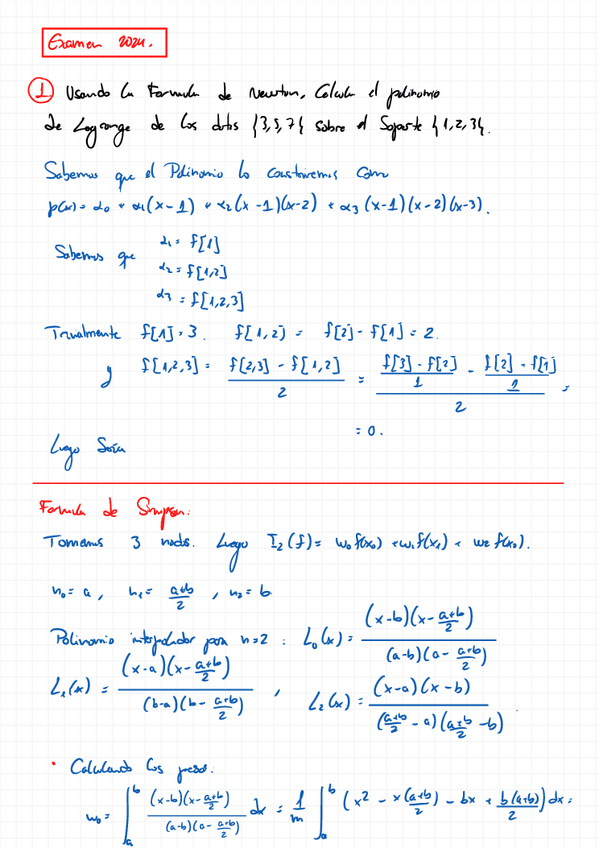 Examen 2024.
1 Usando la Formula de Newton, Calcula el polinomio
de Lagrange de los datos {3,5,7} sobre el Soporte {1,2,3}.
Sabemos que el Polinomio lo construiremos como
p(x) = α₀ + α₁(x-1) + α₂(x-1)(x-2) + α₃(x-1)(x-2)(x-3).
Sabemos que α₁ = f[1]
α₂ = f[1,2]
α₃ = f[1,2,3]
Trivialmente f[1] = 3. f[1,2) = f[2] - f[1] = 2.
y f[1,2,3] = (f[2,3] - f[1,2]) / 2 = ((f[3] - f[2]) / 1 - (f[2] - f[1]) / 1) / 2 =
= 0.
Luego Sería
Formula de Simpson:
Tomemos 3 nodos. Luego I₂(f) = w₀f(x₀) + w₁f(x₁) + w₂ f(x₂).
n₀ = a, n₁ = (a+b)/2, n₂ = b
Polinomio interpolador para n=2 : L₀(x) = (x-b)(x - (a+b)/2) / (a-b)(a - (a+b)/2)
L₁(x) = (x-a)(x - (a+b)/2) / (b-a)(b - (a+b)/2) , L₂(x) = (x-a)(x-b) / ((a+b)/2 - a)((a+b)/2 - b) .
• Calculando los pesos.
w₀ = ∫ₐᵇ (x-b)(x - (a+b)/2) / (a-b)(a - (a+b)/2) dx = 1/m ∫ₐᵇ (x² - x(a+b)/2 - bx + b(a+b)/2) dx =